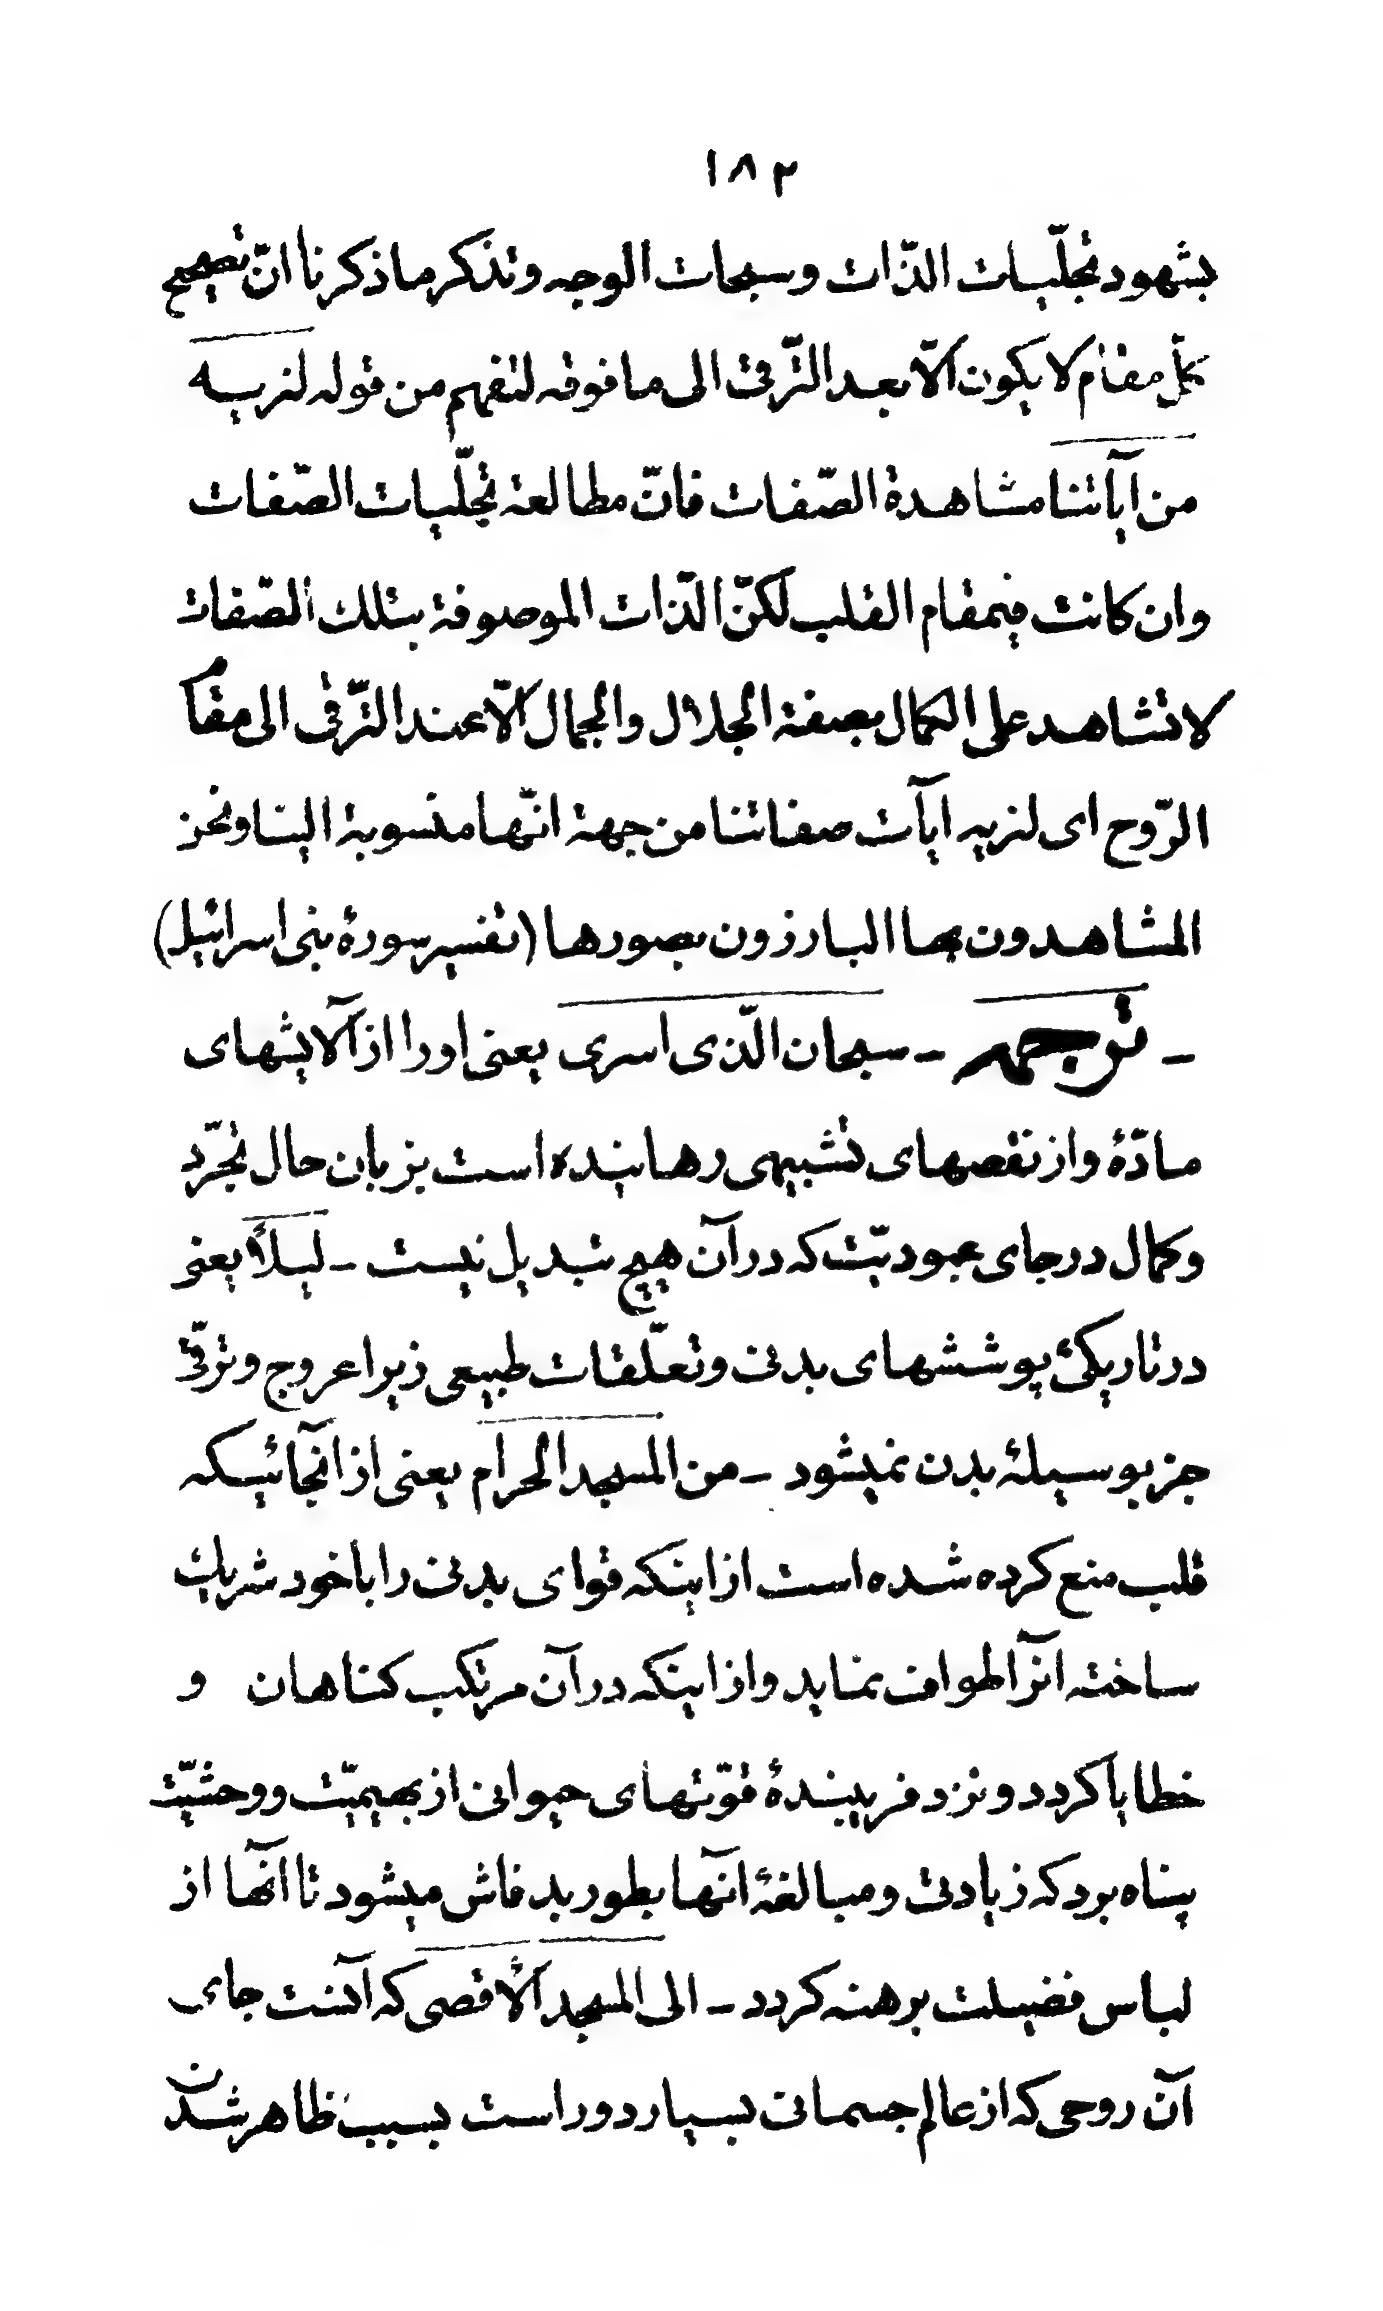 ١٨٢
بشهود تجلّیات الذّات وسبحات الوجه وتذکر ما ذکرنا انّ تصحیح
کلّ مقام لا یکون الّا بعد التّرقی الی ما فوقه لتفهم من قوله لنریه
من آیاتنا مشاهدة الصّفات فانّ مطالعة تجلّیات الصّفات
وان کانت فیمقام القلب لکنّ الذّات الموصوفة بتلک الصّفات
لا تشاهد علی الکمال بصفة الجلال والجمال الّا عند التّرقی الی مقام
الرّوح ای لنریه ایآت صفاتنا من جهة انّها منسوبة الینا ونحن
المشاهدون بها البارزون بصورها (تفسیر سورهٔ بنی اسرائیل)
ـ ترجمه ـ سبحان الّذی اسری یعنی اورا از آلایشهای
مادّهٔ واز نقصهای تشبیهی رهانیده است بزبان حال تجرّد
وکمال در جای عبودیّت که در آن هیچ تبدیل نیست ـ لیلاً یعنی
در تاریکئ پوششهای بدنی وتعلّقات طبیعی زیرا عروج وترقّی
جز بوسیلهٔ بدن نمیشود ـ من المسجد الحرام یعنی از انجائیکه
قلب منع کرده شده است از اینکه قوای بدنی را با خود شریک
ساخته انرا طواف نماید واز اینکه در آن مرتکب کناهان و
خطایا کردد ونزد فریبندهٔ قوّتهای حیوانی از بهیمیّت ووحشیّت
پناه برد که زیادتی ومبالغهٔ انها بطور بد فاش میشود تا آنها از
لباس فضیلت برهنه کردد ـ الی المسجد الأقصی که آنست جای
آن روحی که از عالم جسمانی بسیار دور است بسبب ظاهر شدن